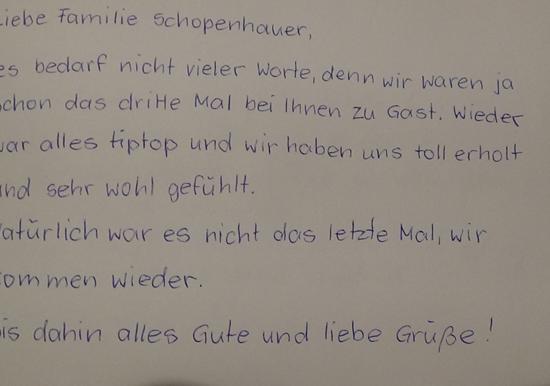 iebe Familie Schopenhauer,
es bedarf nicht vieler Worte, denn wir waren ja
schon das dritte Mal bei Ihnen zu Gast. Wieder
war alles tiptop und wir haben uns toll erholt
und sehr wohl gefühlt.
atürlich war es nicht das letzte Mal, wir
ommen wieder.
is dahin alles Gute und liebe Grüße!